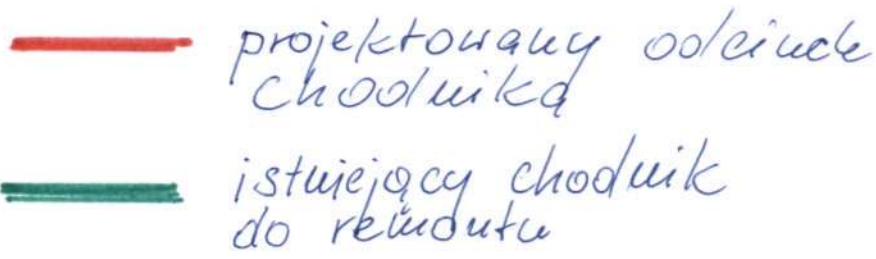 projektowany odcinek
chodnika
istniejący chodnik
do remontu